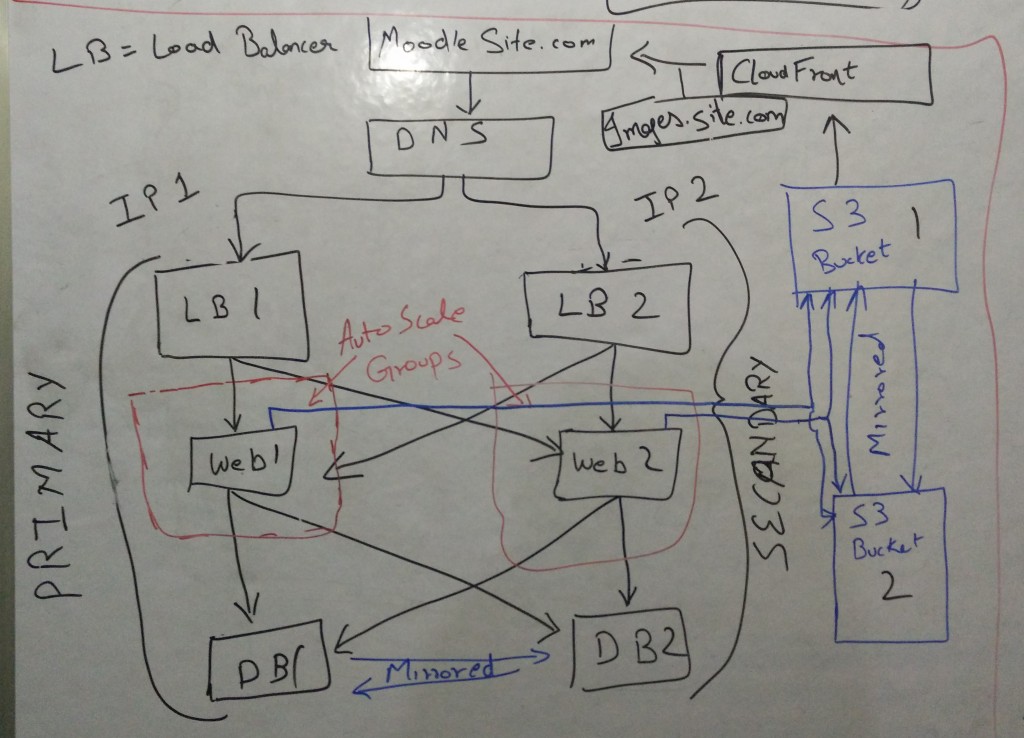 LB = Load Balancer
Moodle Site.com
CloudFront
Images.site.com
DNS
IP 1
IP 2
S3
Bucket
1
LB 1
LB 2
Auto Scale
Groups
PRIMARY
SECANDARY
Mirrored
Web 1
Web 2
S3
Bucket
2
DB1
Mirrored
DB2